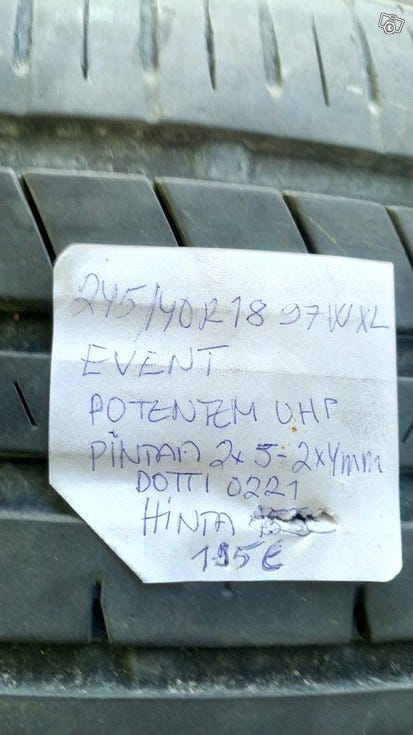 245/40R18 97W XL
EVENT
POTENTEM UHP
PINTAA 2x5- 2x4mm
DOTTI 0221
HINTA
195€